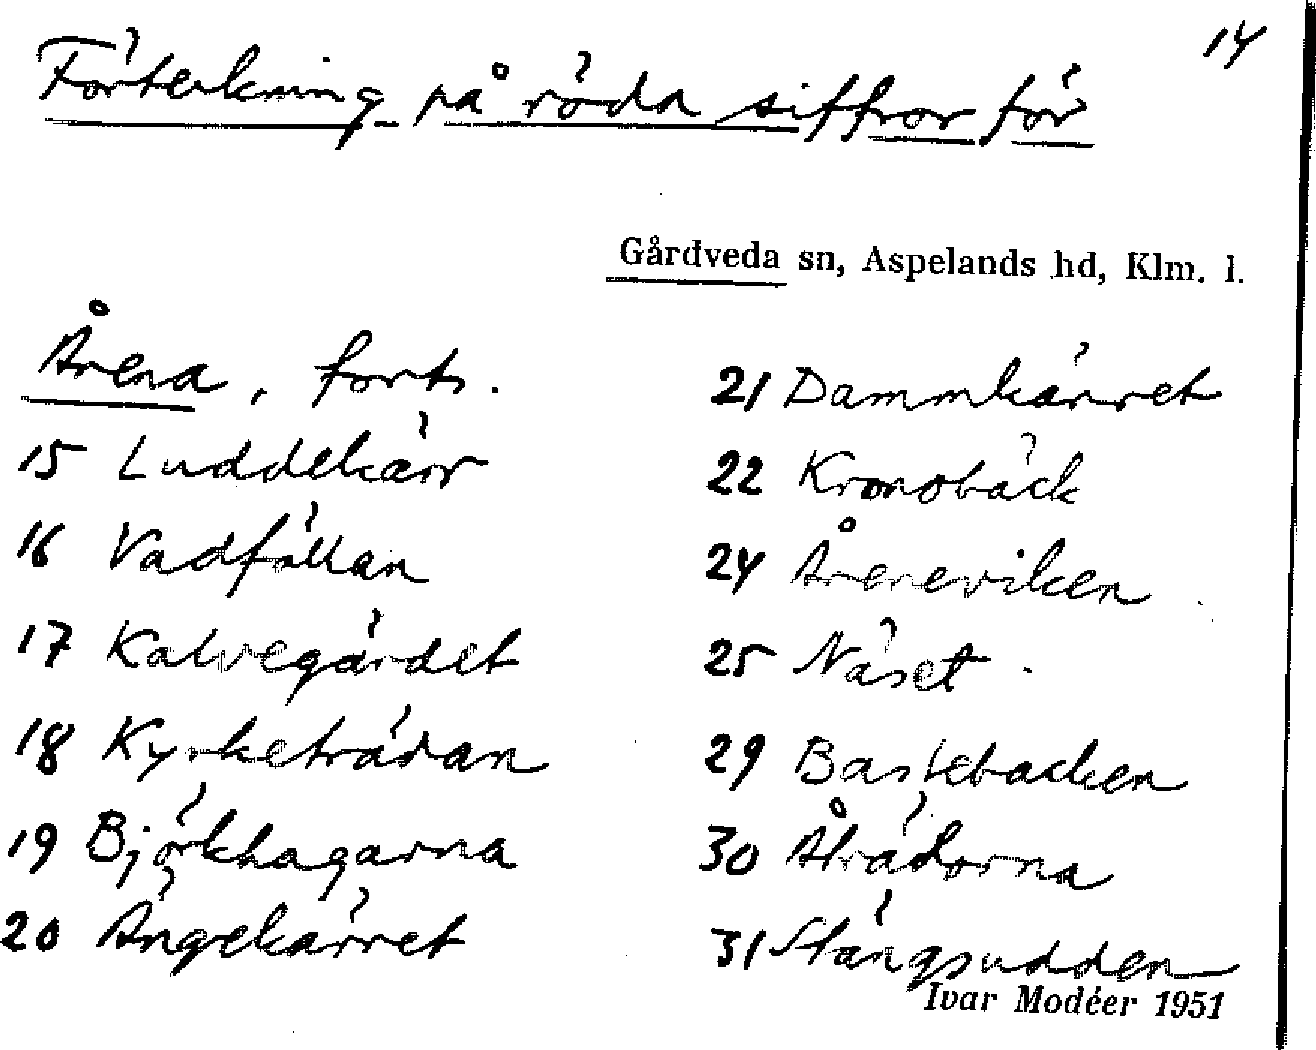 14
Förteckning på röda siffror för
Gårdveda sn, Aspelands hd, Klm. l.
Årena, forts.
15 Luddekärr
16 Vadfällan
17 Kalvegärdet
18 Kyrketrädan
19 Björkhagarna
20 Ängekärret
21 Dammkärret
22 Kronobäck
24 Åreneviken
25 Näset
29 Bastebacken
30 Ålrädorna
31 Stängsudden
Ivar Modéer 1951